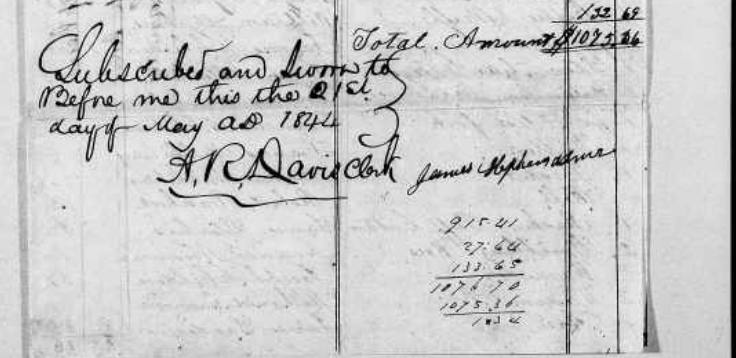 132 69
Total. Amount $1075.36
Subscribed and Sworn to
Before me this the 21st
day of May AD 1844
A. R. Davis Clerk
James Stephens admr
915.41
27.64
133.65
1076 70
1075.36
1.34